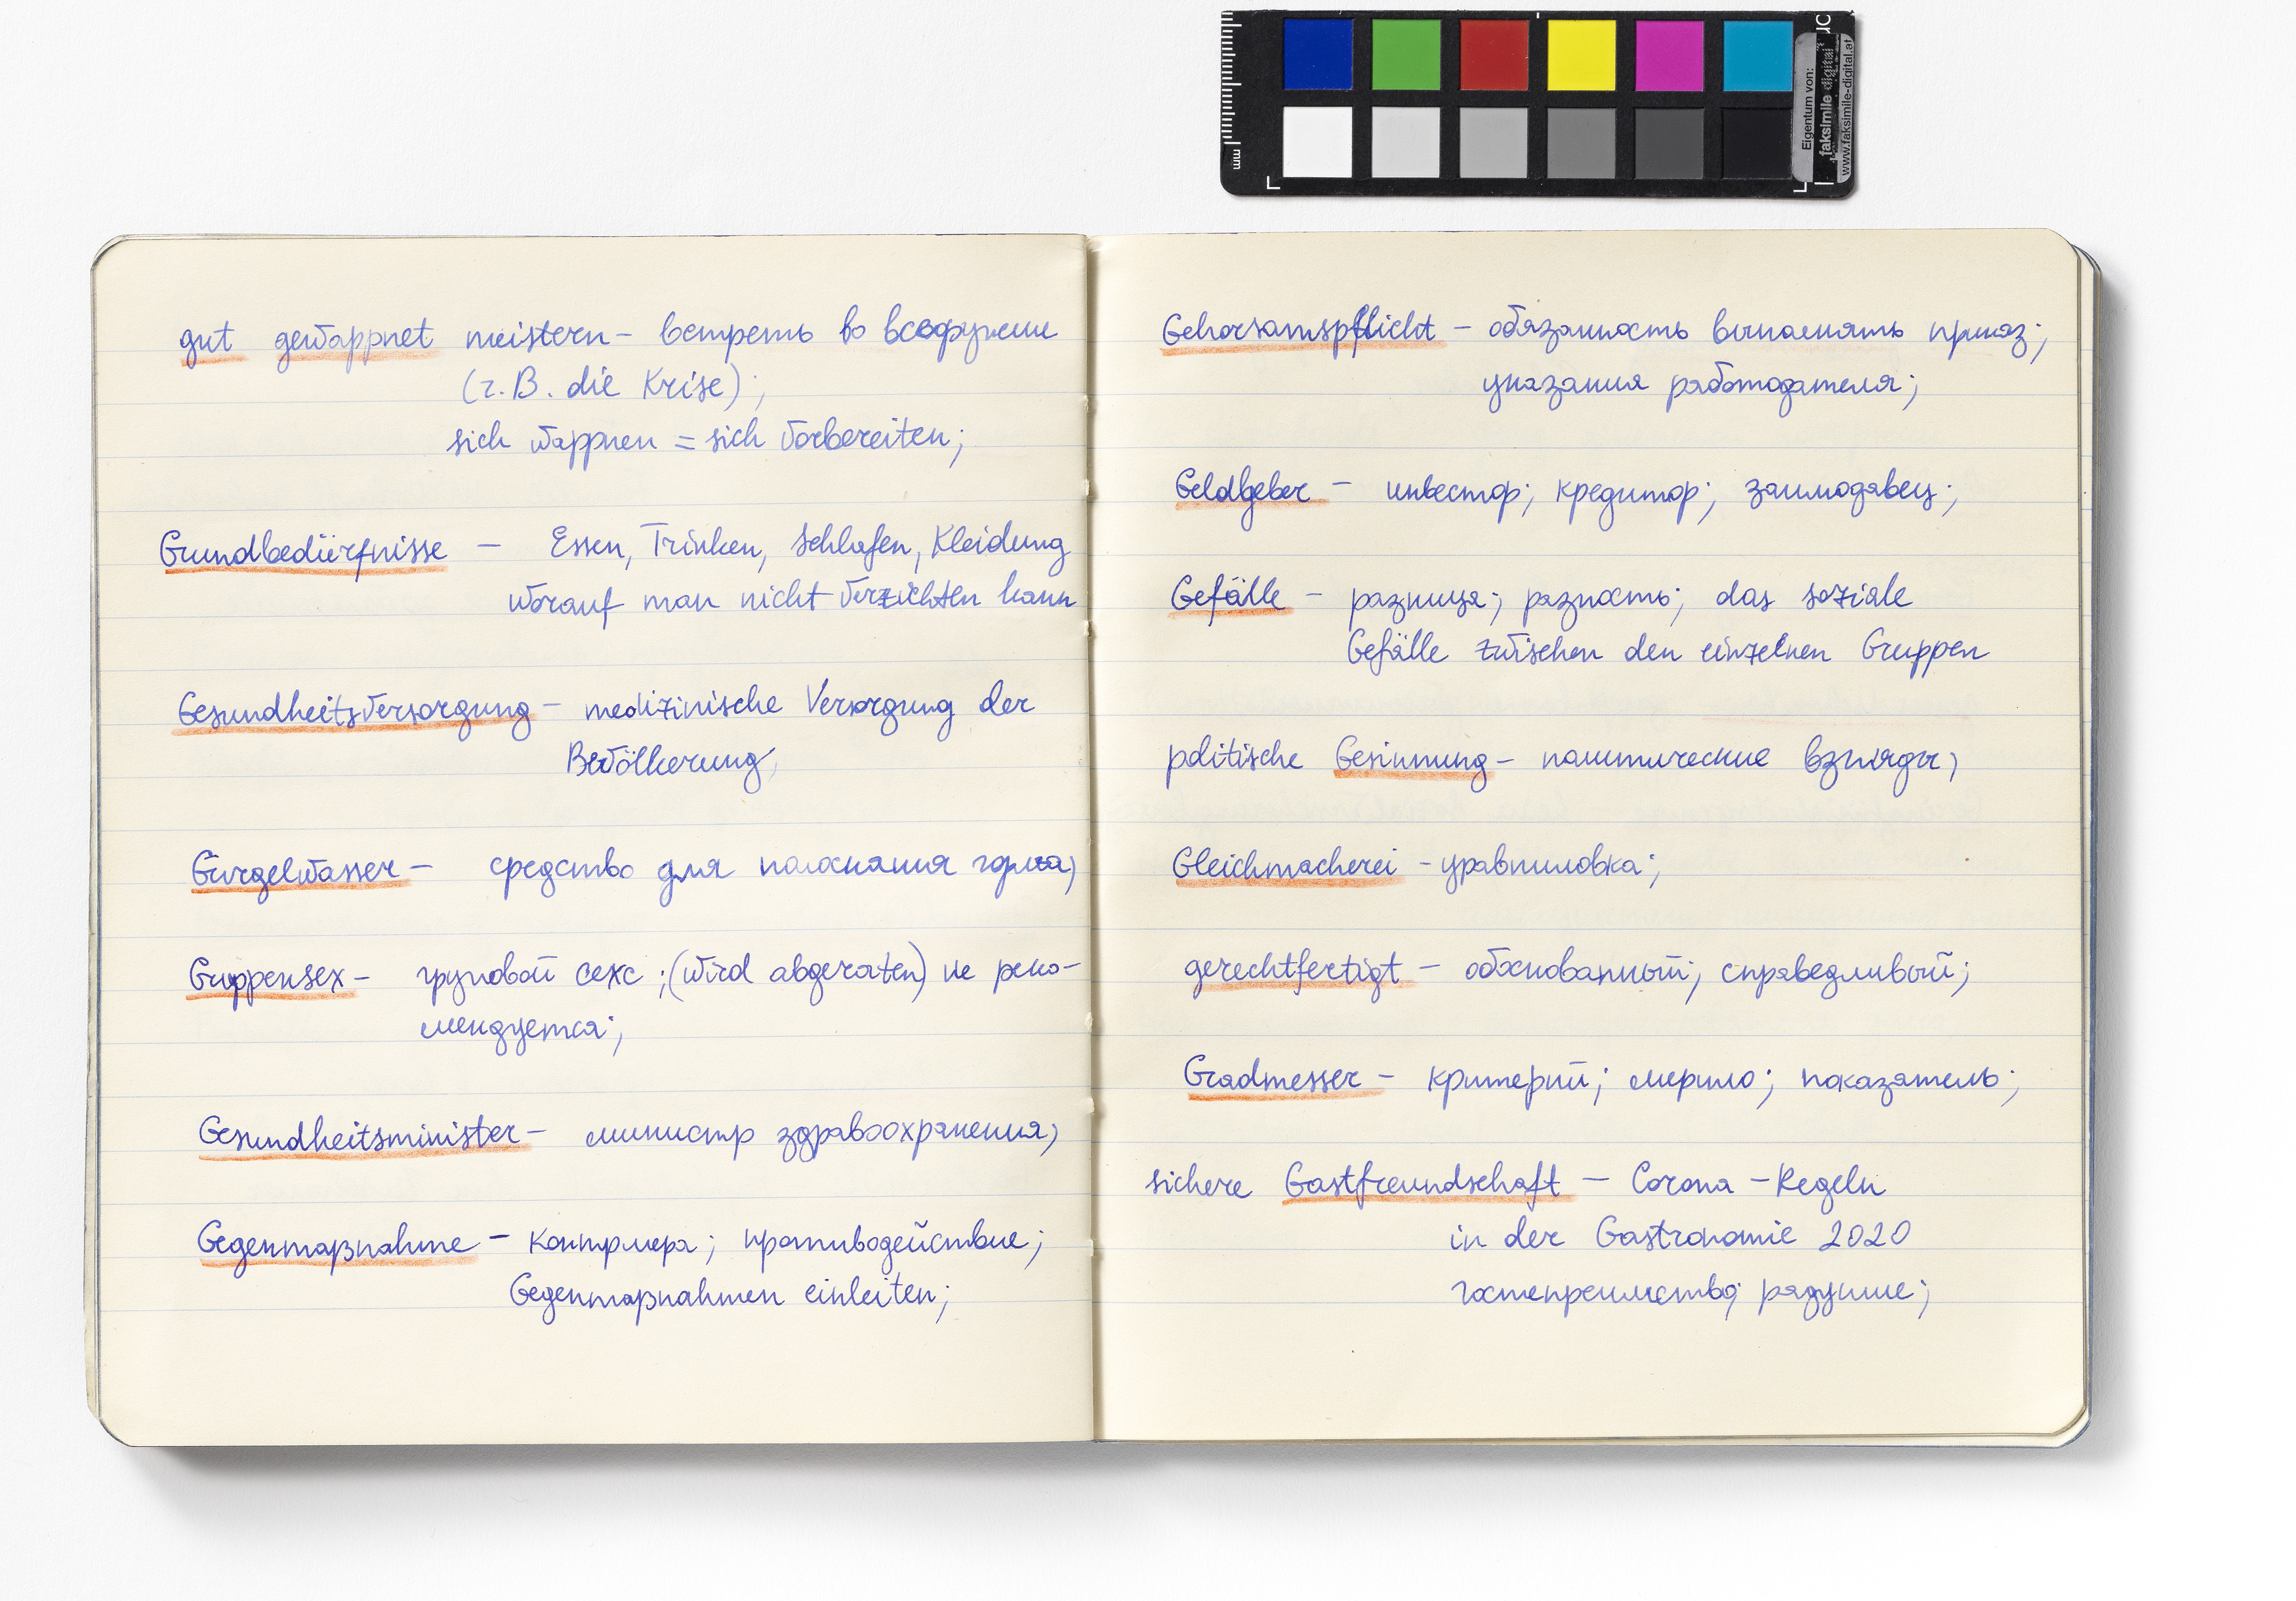 gut gewappnet meistern – встреть во всеоружии
(z.B. die Krise);
sich wappnen = sich vorbereiten;
Grundbedürfnisse – Essen, Trinken, Schlafen, Kleidung
worauf man nicht verzichten kann
Gesundheitsversorgung – medizinische Versorgung der
Bevölkerung;
Gurgelwasser – средство для полоскания горла;
Gruppensex – груповой секс; (wird abgeraten) не реко-
мендуется;
Gesundheitsminister – министр здравоохранения;
Gegenmaßnahme – контрмера; противодействие;
Gegenmaßnahmen einleiten;
Gehorsamspflicht – обязанность выполнять приказ;
указания работодателя;
Geldgeber – инвестор; кредитор; заимодавец;
Gefälle – разница; разность; das soziale
Gefälle zwischen den einzelnen Gruppen
politische Gesinnung – политические взгляды;
Gleichmacherei – уравниловка;
gerechtfertigt – обоснованный; справедливый;
Gradmesser – критерий; мерило; показатель;
sichere Gastfreundschaft – Corona – Regeln
in der Gastronomie 2020
гостеприимство; радушие;
mm
Eigentum von:
faksimile digital
www.faksimile-digital.at